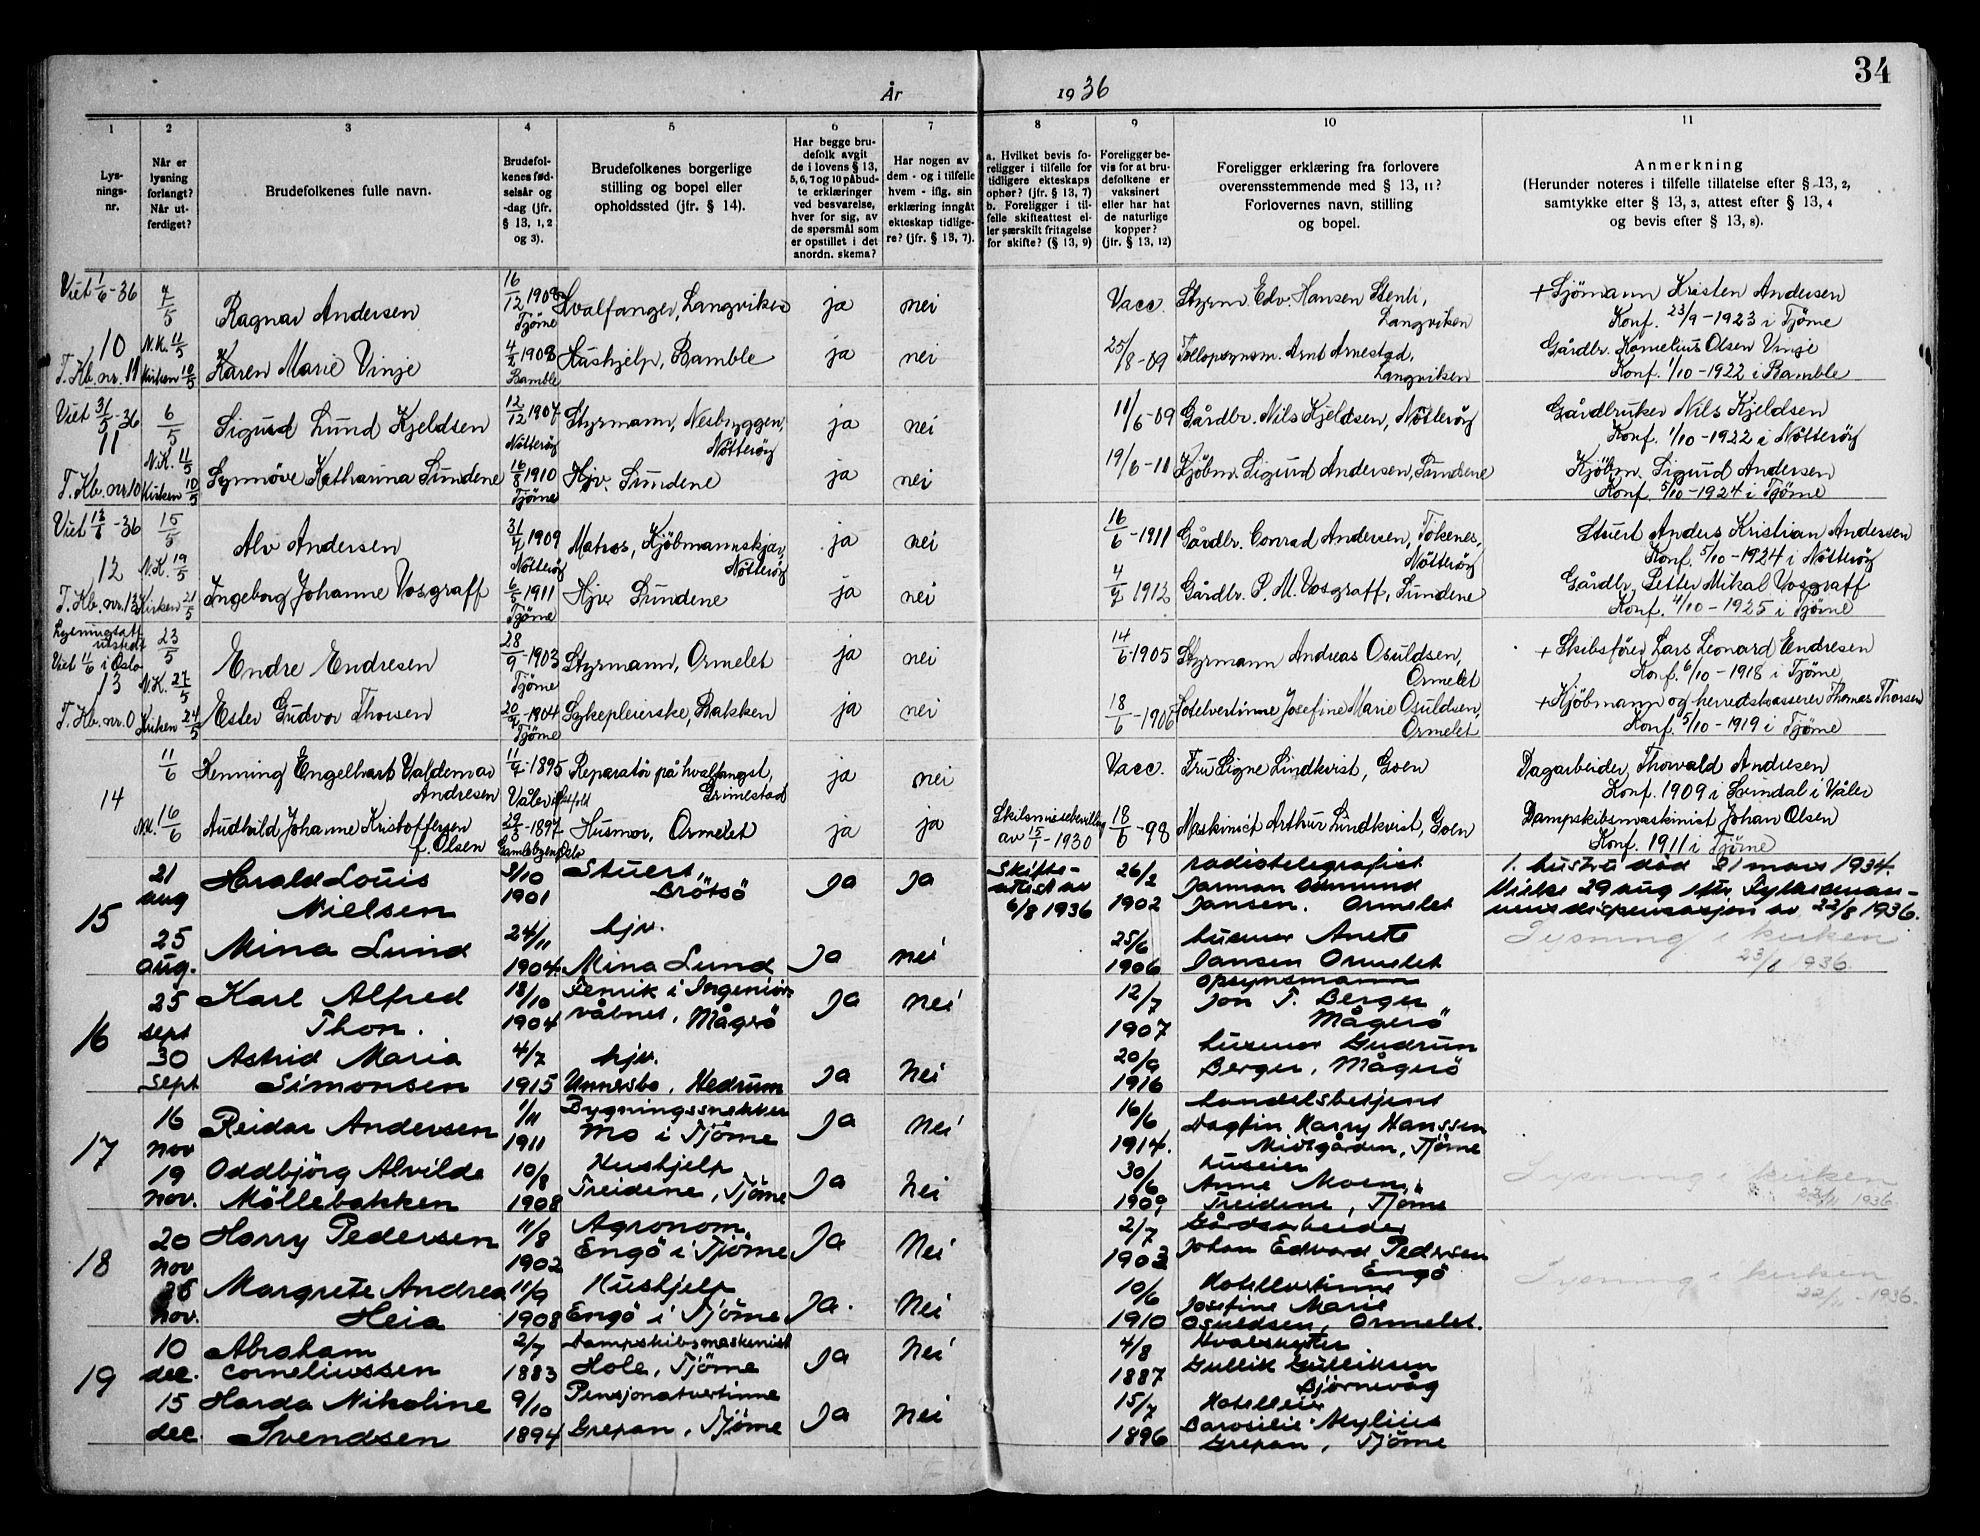 34
År 1936
1
2
3
4
5
6
7
8
9
10
11
Lys-
nings-
nr.
Når er
lysning
forlangt?
Når ut-
ferdiget?
Brudefolkenes fulle navn.
Brudefol-
kenes fød-
selsår og
-dag (jfr.
§ 13, 1, 2
og 3).
Brudefolkenes borgerlige
stilling og bopel eller
opholdssted (jfr. § 14).
Har begge bru-
defolk avgit
de i lovens § 13,
5, 6, 7 og 10 påbud-
te erklæringer
ved besvarelse,
hver for sig, av
de spørsmål som
er opstillet i det
anordn. skema?
Har nogen av
dem - og i tilfelle
hvem - iflg. sin
erklæring inngåt
ekteskap tidlige-
re? (jfr. § 13, 7).
a. Hvilket bevis fo-
religger i tilfelle for
tidligere ekteskaps
ophør? (jfr. § 13, 7)
b. Foreligger i til-
felle skifteattest el-
ler særskilt fritagelse
for skifte? (§ 13, 9)
Foreligger be-
vis for at bru-
defolkene er
vaksinert
eller har hat
de naturlige
kopper?
(jfr. § 13, 12)
Foreligger erklæring fra forlovere
overensstemmende med § 13, 11?
Forlovernes navn, stilling
og bopel.
Anmerkning
(Herunder noteres i tilfelle tillatelse efter § 13, 2,
samtykke efter § 13, 3, attest efter § 13, 4
og bevis efter § 13, 8).
Viet 1/6-36
10
T. Kb. nr. 11
7/5
N.K. 11/5
Kirken 10/5
Ragnar Andersen
16/12 1908
Tjöme
Hvalfanger, Langviken
ja
nei
Vacc.
Styrm. Edv. Hansen Stenli,
Langviken
+ Sjömann Kristen Andersen
Konf. 23/9-1923 i Tjöme
Karen Marie Vinje
4/2 1908
Bamble
Hushjelp, Bamble
ja
nei
25/8-09
Tollopsynsm. Arnt Arnestad,
Langviken
Gårdbr. Kornelius Olsen Vinje
Konf. 1/10-1922 i Bamble
Viet 31/5-36
11
T. Kb. nr 10
6/5
N.K. 11/5
Kirken 10/5
Sigurd Lund Kjeldsen
12/12 1907
Nötteröy
Styrmann, Nesbryggen,
Nötteröy
ja
nei
11/6-09
Gårdbr. Nils Kjeldsen, Nötteröy
Gårdbruker Nils Kjeldsen
Konf. 1/10-1922 i Nötteröy
Synnöve Katharina Sundene
16/8 1910
Tjöme
Hjv. Sundene
ja
nei
19/6-11
Kjöbm. Sigurd Andersen, Sundene
Kjöbm. Sigurd Andersen
Konf. 5/10-1924 i Tjöme
Viet 13/6-36
12
T. Kb. nr. 13
15/5
N.K. 19/5
Kirken 21/5
Alv Andersen
31/7 1909
Nötteröy
Matros, Kjöbmannskjær,
Nötteröy
ja
nei
16/6-1911
Gårdbr. Conrad Andersen, Tokenes,
Nötteröy
Stuert Anders Kristian Andersen
Konf. 5/10-1924 i Nötteröy
Ingeborg Johanne Vosgraff
6/5 1911
Tjöme
Hjv Sundene
ja
nei
4/7 1912
Gårdbr. P. M. Vosgraff, Sundene
Gårdbr. Petter Mikal Vosgraff
Konf. 4/10-1925 i Tjöme
Lysningsatt.
utstedt
Viet 11/6 i Oslo
13
T. Kb. nr. 0
23/5
N.K. 27/5
Kirken 24/5
Endre Endresen
28/9-1903
Tjöme
Styrmann, Ormelet
ja
nei
14/6-1905
Styrmann Andreas Osuldsen,
Ormelet
+ Skibsförer Lars Leonard Endresen
Konf. 6/10-1918 i Tjöme
Ester Gudvor Thorsen
20/4-1904
Tjöme
Sykepleierske, Bakken
ja
nei
18/6-1906
Hotelvertinne Josefine Marie Osuldsen,
Ormelet
+ Kjöbmann og herredskasserer Thomas Thorsen
Konf. 5/10-1919 i Tjöme
14
11/6
Henning Engelhart Valdemar
Andresen
11/4-1895
Våler i Østfold
Reparatör på hvalfangst,
Grimestad
ja
nei
Vacc.
Fru Signe Lindkvist, Goen
Dagarbeider Thorvald Andresen
Konf. 1909 i Svindal i Våler
N.K. 16/6
Audhild Johanne Kristoffersen
f. Olsen
29/3-1897
Gamlebyen, Oslo
Husmor, Ormelet
ja
ja
Skilsmissebevilling
av 15/1-1930
18/6-98
Maskinist Arthur Lindkvist, Goen
Dampskibsmaskinist Johan Olsen
Konf. 1911 i Tjöme
15
21
aug
Harald Louis
Nielsen
3/10
1901
Stuert,
Brötsö
Ja
Ja
Skifte-
attest av
6/8 1936
26/2
1902
radiotelegrafist
Jarman Osmund
Jansen. Ormelet
1. hustru död 21 mars 1934.
Vielse 29 aug efter Fylkesman-
nens dispensasjon av 22/8 1936.
25
aug.
Mina Lund
24/11
1904.
hjv.
Mina Lund
Ja
nei
25/6
1906
husmor Anete
Jansen Ormelet
Lysning i kirken
23/8 1936.
16
25
sept
Karl Alfred
Thon.
18/10
1904
Fenrik i Ingeniör-
våbnet, Mågerö
Ja
nei
12/7
1907
opsynsmann
Jon T. Berger
Mågerö
30
Sept
Astrid Maria
Simonsen
4/7
1915
hjv.
Unnesbo, Hedrum
Ja
Nei
20/9
1916
husmor Gudrun
Berger, Mågerö
17
16
nov
Reidar Andersen
1/11
1911
Bygningssnekker
Mo i Tjöme
Ja
nei
16/6
1914.
handelsbetjent
Dagfin Harry Hanssen
Midtgården, Tjöme
19
nov.
Oddbjörg Alvilde
Möllebakken
10/8
1908
Hushjelp
Treidene, Tjöme
Ja
Nei
30/6
1909
huseier
Anne Moen,
Treidene, Tjöme
Lysning i kirken
22/11 1936.
18
20
nov
Harry Pedersen
11/8
1902
Agronom
Engö i Tjöme
Ja
Nei
2/7
1903
Gårdsarbeider
Johan Edvard Pedersen
Engö
nov.
Margrete Andrea
Heia
11/9
1908
Hushjelp
Engö i Tjöme
Ja.
Nei
10/6
1910
Hotellvertinne
Josefine Marie
Osuldsen, Ormelet.
Lysning i kirken
22/11-1936.
19
10
dec.
Abraham
Corneliussen
2/7
1883
Dampskibsmaskinist
Hole, Tjöme
Ja
Nei
4/8
1887
Hvalskytter
Gullik Gulliksen
Björnevåg
15
dec
Harda Nikoline
Svendsen
9/10
1894
Pensjonatvertinne
Grepan, Tjöme
Ja
Nei
15/7
1896
Hotelleier
Mylius
Grepan, Tjöme